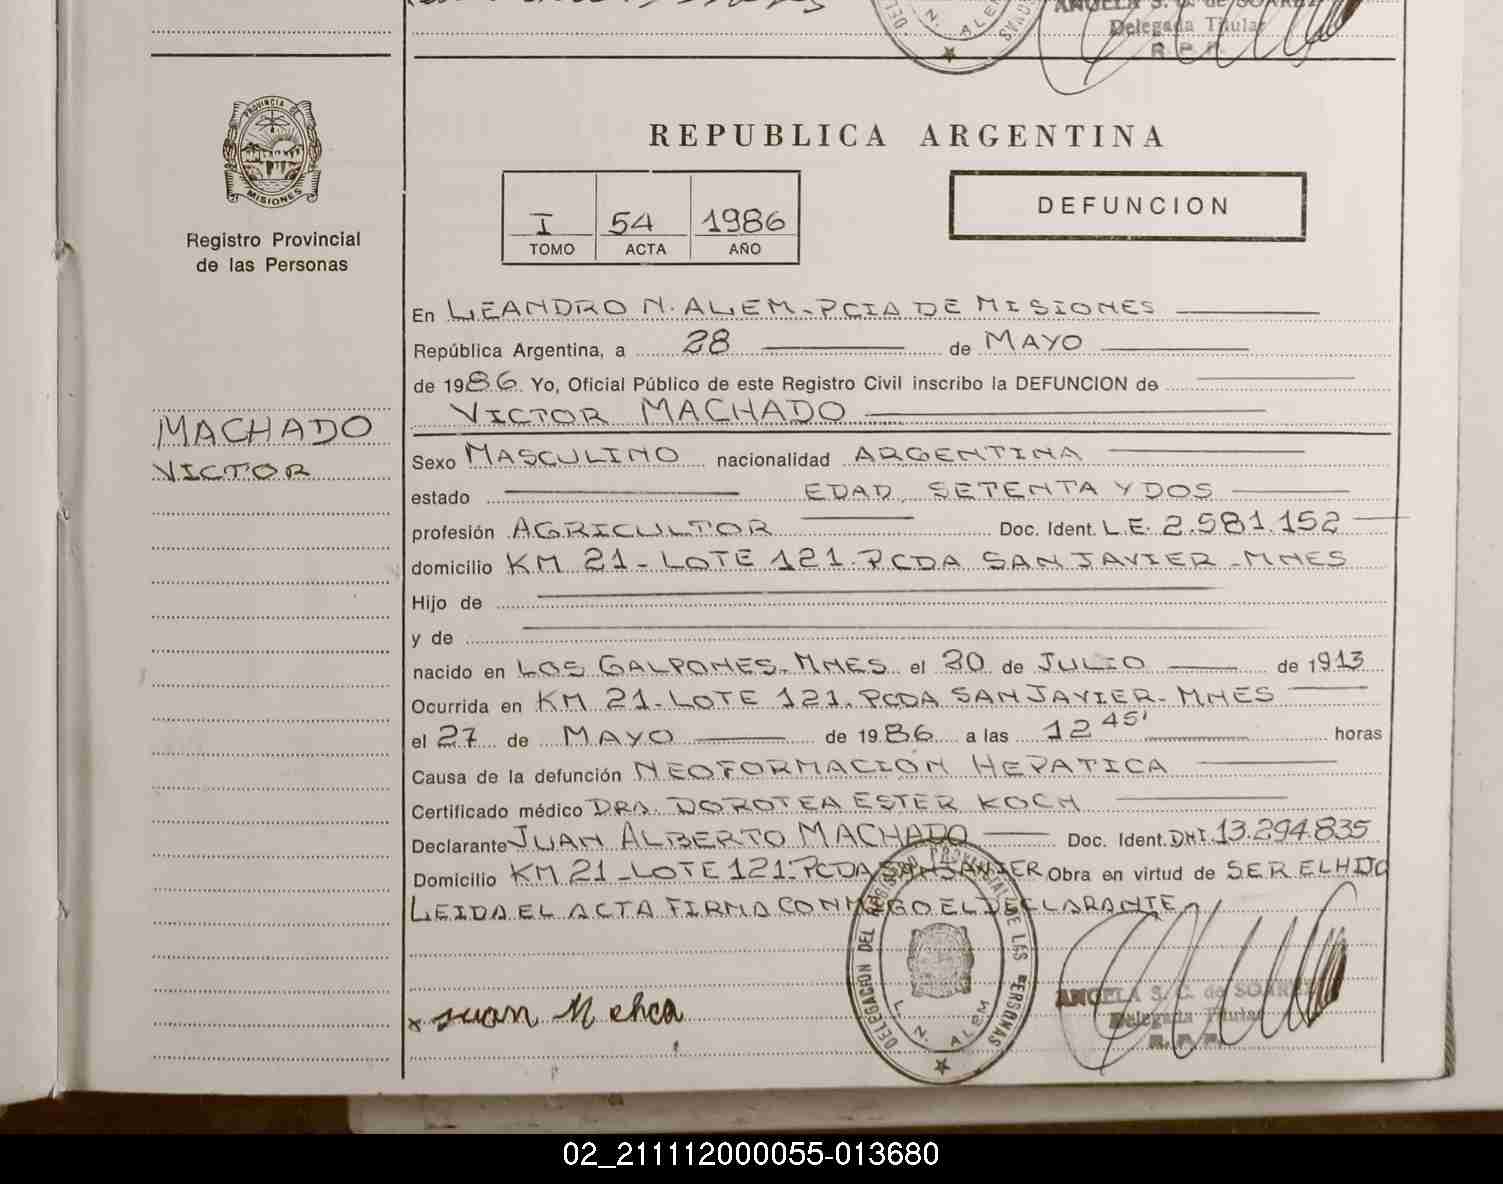 ANGELA S. C. de SOAREZ
Delegada Titular
R. P. P.
L. N. ALEM
PROVINCIA DE
MISIONES
Registro Provincial
de las Personas
REPUBLICA ARGENTINA
I 54 1986
TOMO ACTA AÑO
DEFUNCION
En LEANDRO N. ALEM - PCIA DE MISIONES
República Argentina, a 28 de MAYO
de 1986 Yo, Oficial Público de este Registro Civil inscribo la DEFUNCION de
VICTOR MACHADO
MACHADO
VICTOR
Sexo MASCULINO nacionalidad ARGENTINA
estado EDAD, SETENTA Y DOS
profesión AGRICULTOR Doc. Ident. L.E. 2.581.152
domicilio KM 21 - LOTE 121. PCDA SAN JAVIER - MNES
Hijo de
y de
nacido en LOS GALPONES - MNES el 30 de JULIO de 1913
Ocurrida en KM 21 - LOTE 121. PCDA SAN JAVIER - MNES
el 27 de MAYO de 1986 a las 12 45' horas
Causa de la defunción NEOFORMACION HEPATICA
Certificado médico DRA. DOROTEA ESTER KOCH
Declarante JUAN ALBERTO MACHADO Doc. Ident. DNI. 13.294.835
Domicilio KM 21 - LOTE 121. PCDA SAN JAVIER Obra en virtud de SER EL HIJO
LEIDA EL ACTA FIRMA CONMIGO EL DECLARANTE
DELEGACION DEL REGISTRO PROVINCIAL DE LAS PERSONAS
L. N. ALEM
x Juan
ANGELA S. C. de SOAREZ
Delegada Titular
R. P. P.
02_211112000055-013680